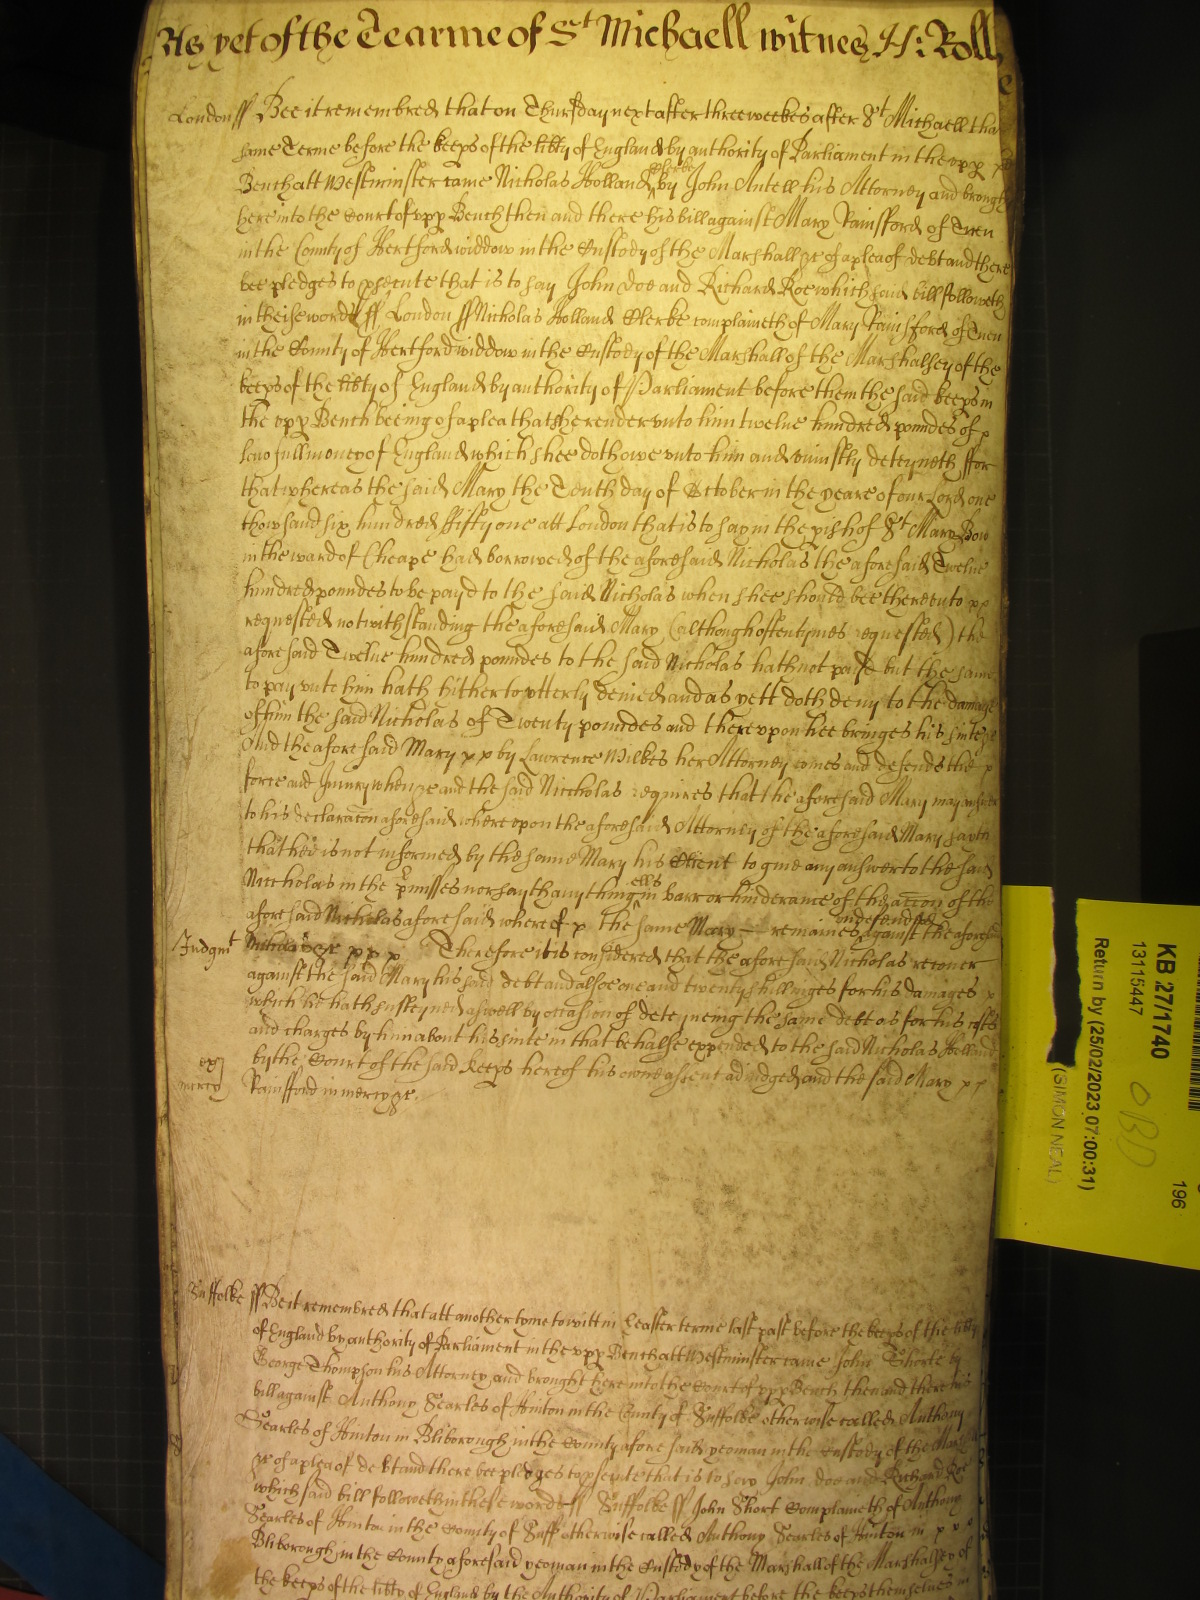 As yet of the Tearme of St Michaell witnes H: Roll
London ss Bee it remembred that on Thursday next after three weekes after St Michaell tha
same Terme before the keeps of the libty of England by authority of Parliament in the upp
Bench att Westminster came Nicholas Holland Clerke by John Antell his Attorney and brought
here into the Court of upp Bench then and there his bill against Mary Rainsford of
in the County of Hertford widdow in the Custody of the Marshall &c of a plea of debt and there
bee pledges to psecute that is to say John Doe and Richard Roe which said bill followeth
in theise words ss London ss Nicholas Holland Clerke complaineth of Mary Rainsford of
in the County of Hertford widdow in the Custody of the Marshall of the Marshallsey of the
keeps of the libty of England by authority of Parliament before them the said keeps in
the upp Bench beeing of a plea that she render unto him twelve hundred poundes of
lawfull money of England which shee doth owe unto him and uniustly deteyneth ffor
that whereas the said Mary the Tenth day of October in the yeare of our Lord one
thowsand six hundred ffifty one att London that is to say in the pish of St Mary Bow
in the ward of Cheape had borrowed of the aforesaid Nicholas the aforesaid Twelve
hundred poundes to be payd to the said Nicholas when shee should bee thereunto
requested notwithstanding the aforesaid Mary (although oftentymes requested) the
aforesaid Twelve hundred poundes to the said Nicholas hath not paid but the same
to pay unto him hath hitherto utterly denied and as yett doth deny to the damage
of him the said Nicholas of Twenty poundes and thereupon hee bringes his suite &c
And the aforesaid Mary by Lawrence Wilkes her Attorney comes and defends the
force and Iniury when &c and the said Nicholas requires that the aforesaid Mary may answer
to his declaracon aforesaid whereupon the aforesaid Attorney of the aforesaid Mary sayth
that hee is not informed by the same Mary his Client to give any answer to the said
Nicholas in the pmisses nor sayth any thing ells in barr or hinderance of the accon of the
aforesaid Nicholas aforesaid whereof the same Mary remaines undefended against the aforesaid
Iudgmt Nicholas &c Therefore it is considered that the aforesaid Nicholas recover
against the said Mary his said debt and alsoe one and twenty shillinges for his damages
which he hath susteyned aswell by occasion of deteyneing the same debt as for his costs
and charges by him about his suite in that behalfe expended to the said Nicholas Holland
by the Court of the said keeps here of his owne assent adiudged and the said Mary
mercy Rainsford in mercy &c.
Suffolke ss Be it remembred that att another tyme to witt in Easter terme last past before the keeps of the libty
of England by authority of Parliament in the upp Bench att Westminster came John Shorte by
George Thompson his Attorney and brought here into the Court of upp Bench then and there his
bill against Anthony Searles of Hinton in the County of Suffolke otherwise called Anthony
Searles of Hinton in Bliborough in the County aforesaid yeoman in the custody of the Marshall
&c of a plea of debt and there bee pledges to psecute that is to say John Doe and Richard Roe
which said bill followeth in these words ss Suffolke ss John Short Complaineth of Anthony
Searles of Hinton in the County of Suff otherwise called Anthony Searles of Hinton in
Bliborough in the County aforesaid yeoman in the Custody of the Marshall of the Marshallsey of
the keeps of the libty of England by the Authority of Parliament before the keeps themselves in
KB 27/1740
13115447
Return by (25/02/2023 07:00:31)
(SIMON NEAL)
196